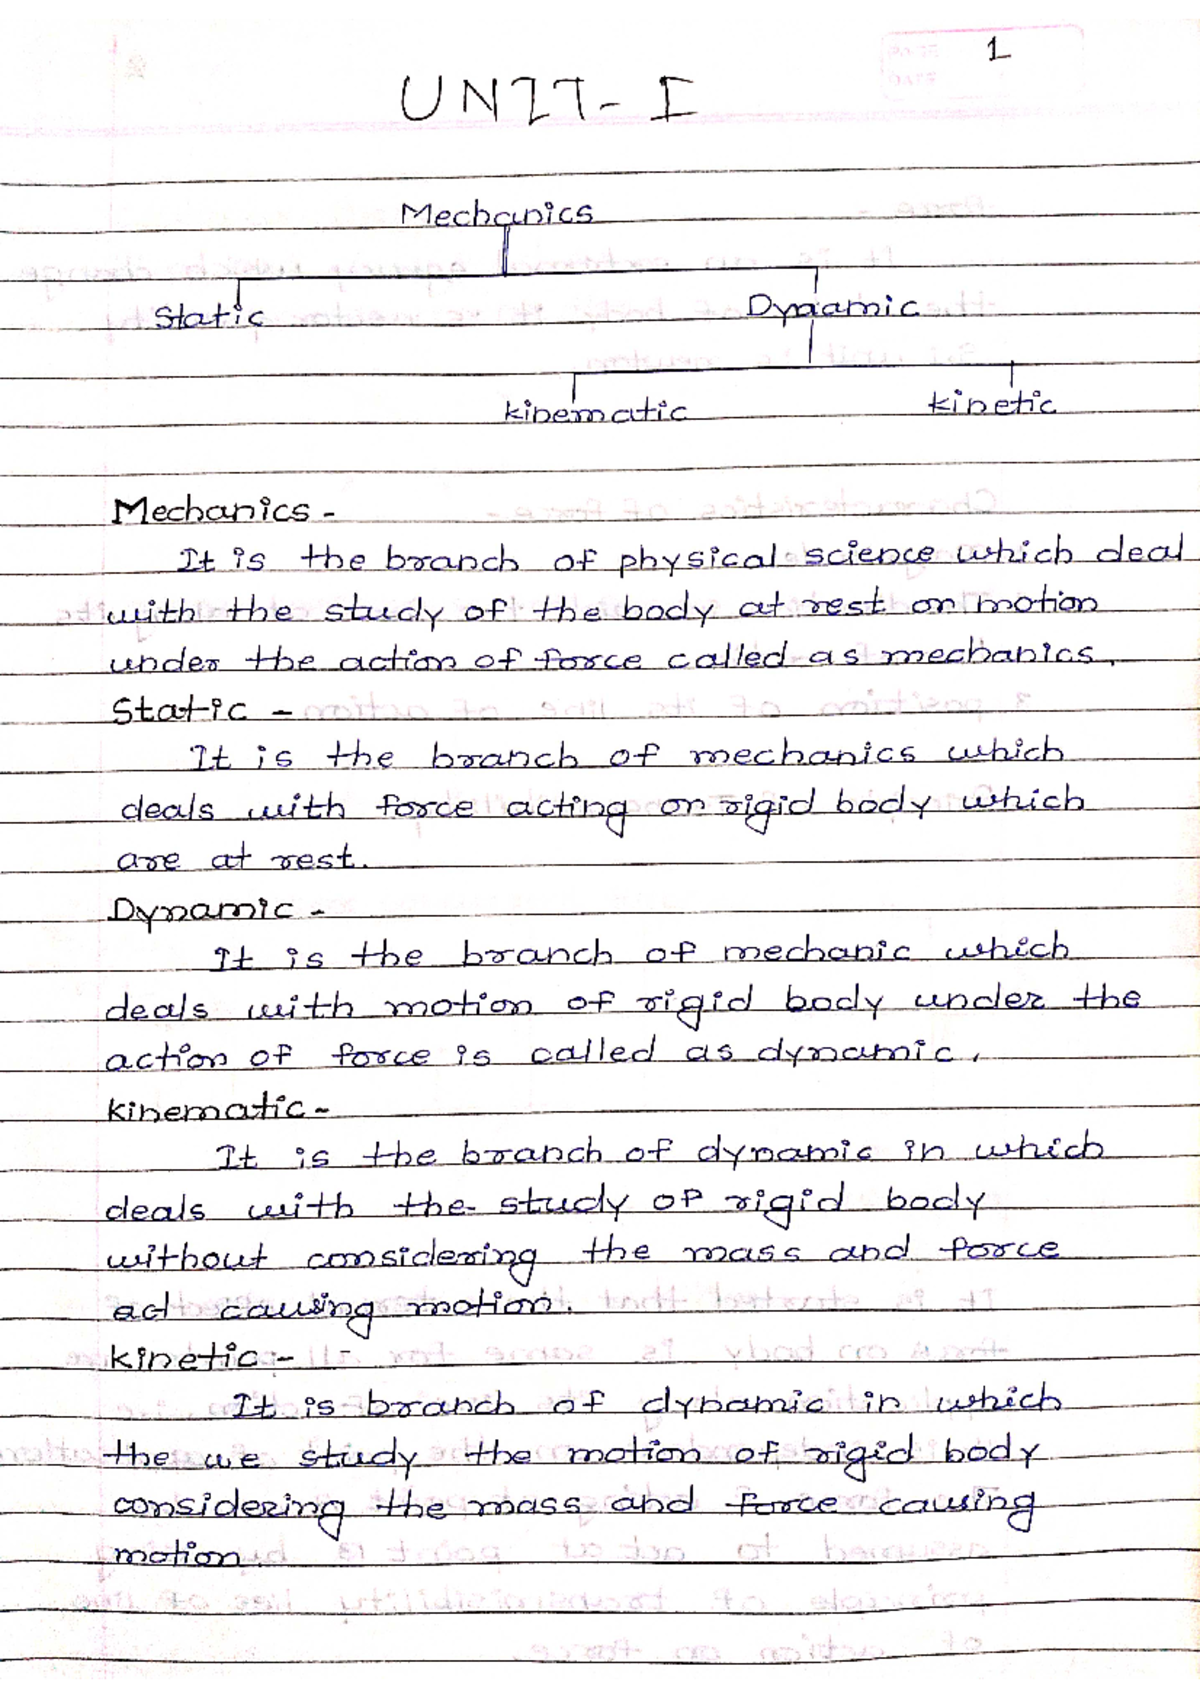 1
UNIT-I
Mechanics
Static Dynamic
kinematic kinetic
Mechanics -
It is the branch of physical science which deal
with the study of the body at rest on motion
under the action of force called as mechanics.
Static -
It is the branch of mechanics which
deals with force acting on rigid body which
are at rest.
Dynamic -
It is the branch of mechanic which
deals with motion of rigid body under the
action of force is called as dynamic.
kinematic -
It is the branch of dynamic in which
deals with the study of rigid body
without considering the mass and force
act causing motion.
kinetic -
It is branch of dynamic in which
the we study the motion of rigid body
considering the mass and force causing
motion.